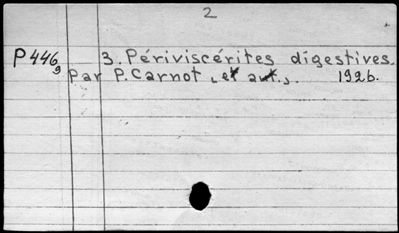 2
P446 3. Périviscérites digestives.
9 Par P. Carnot, et aut., . 1926.